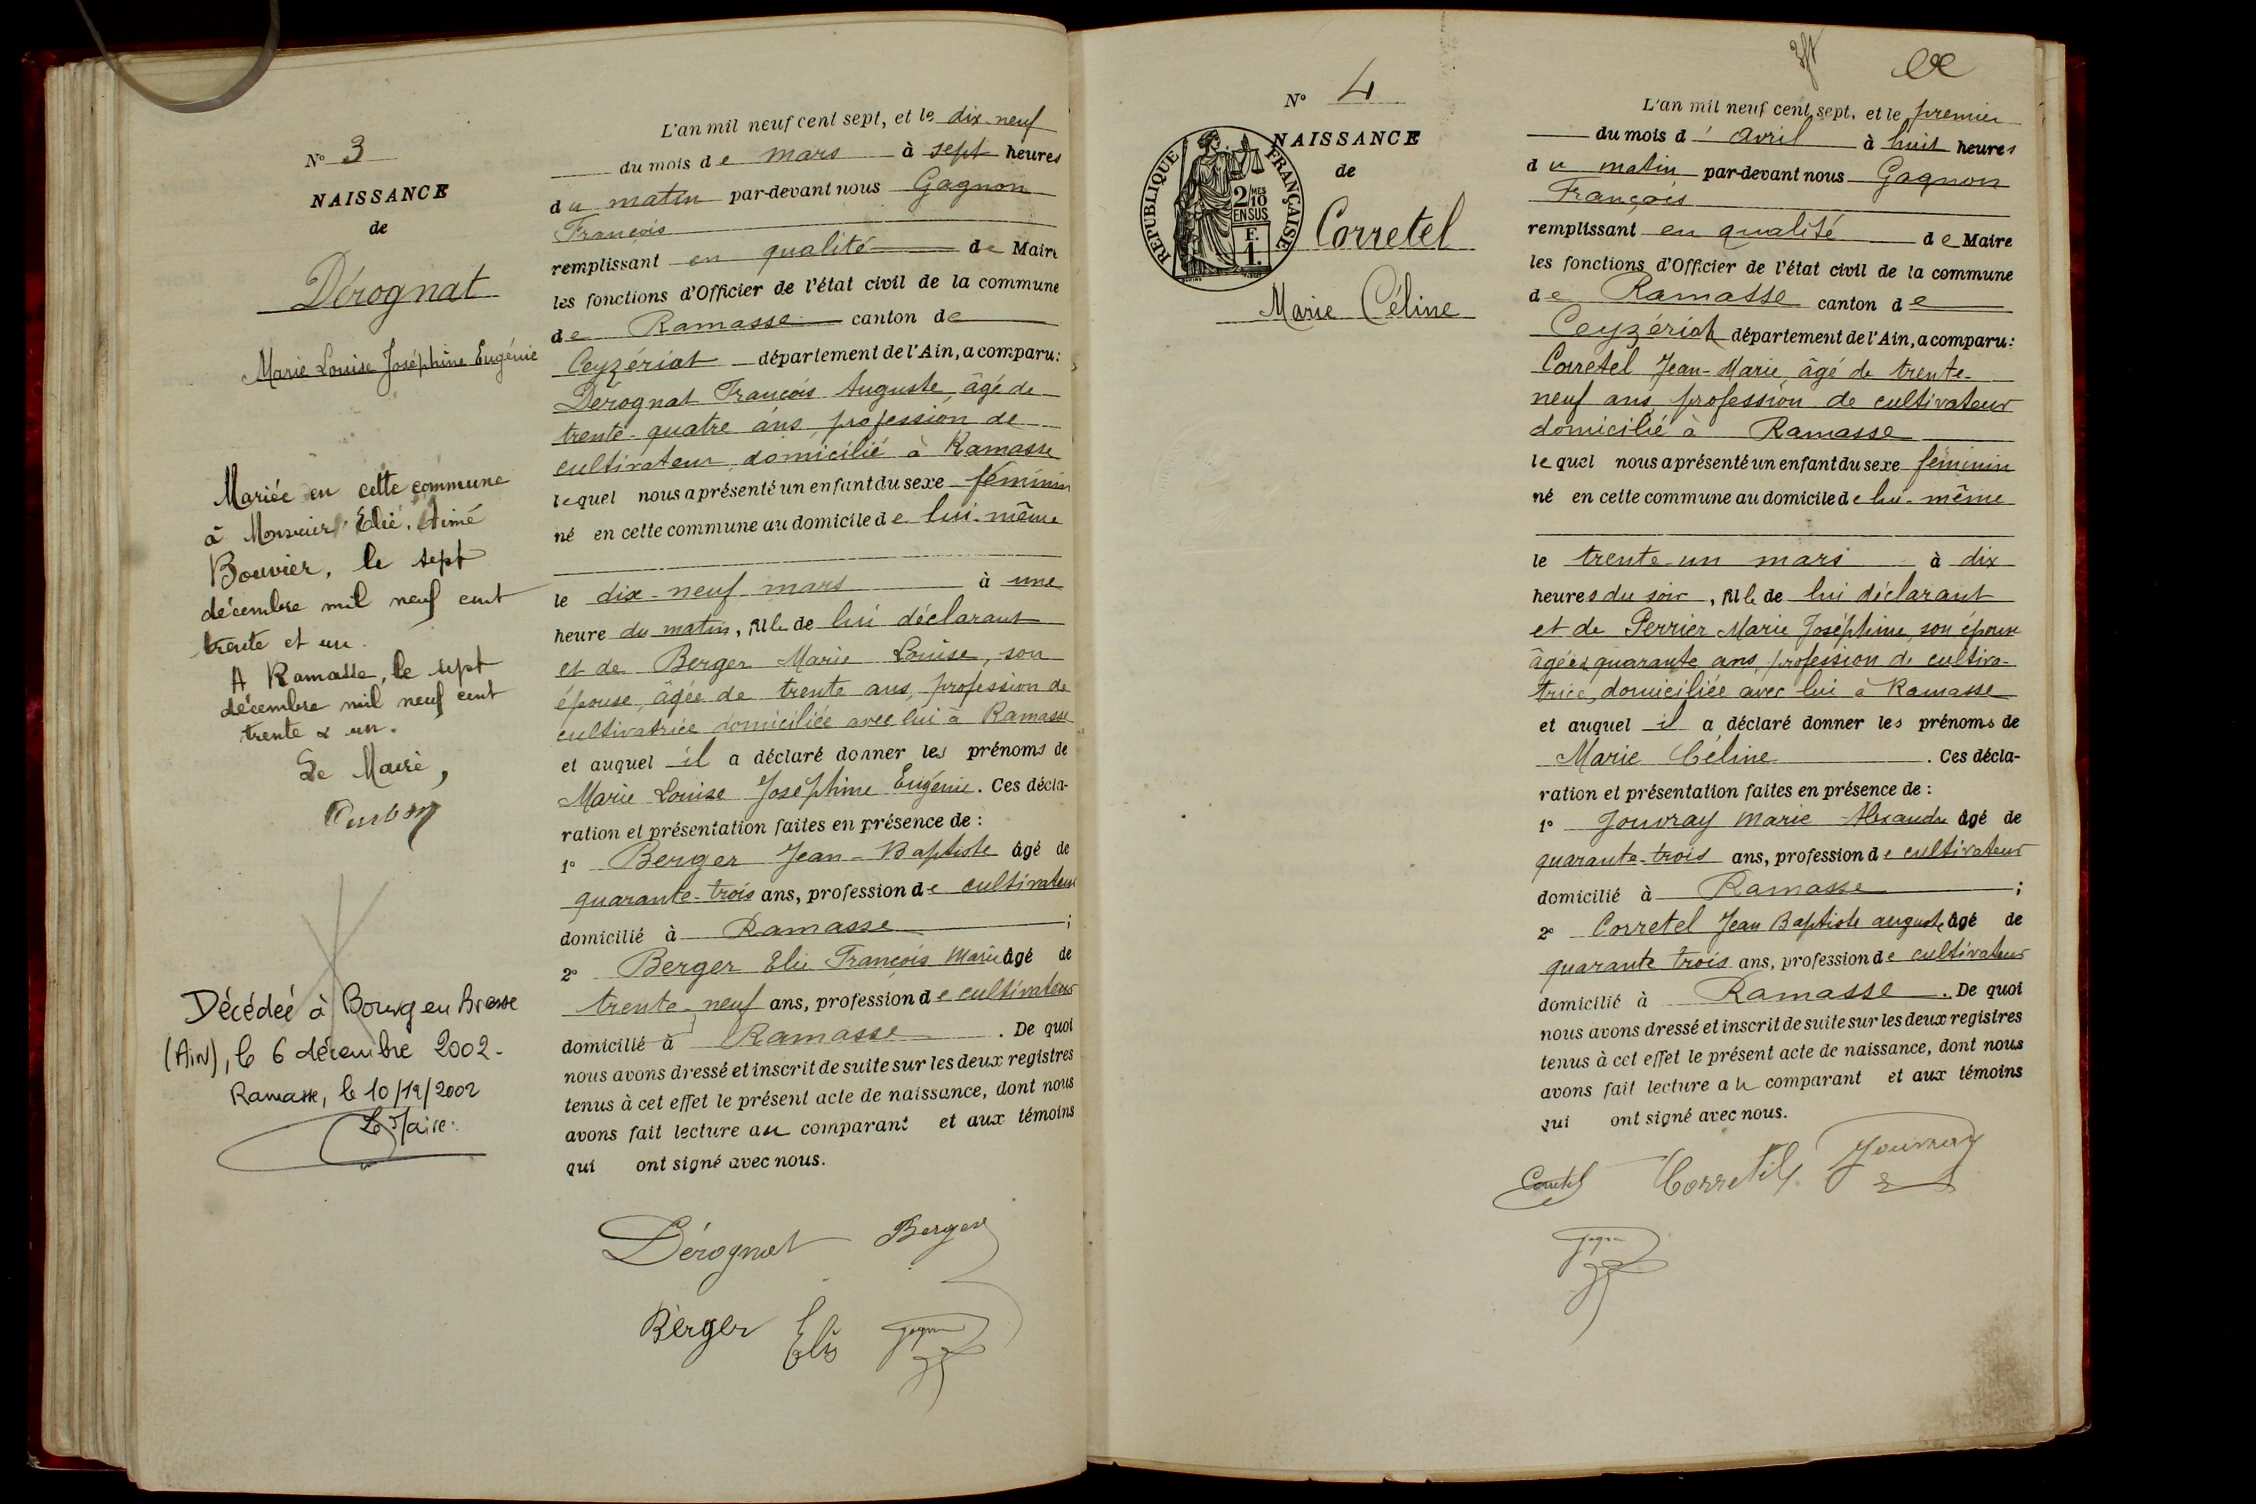 N° 3
NAISSANCE
de
Dérognat
Marie Louise Joséphine Eugénie
Mariée en cette commune
à Monsieur Elie. Aimé
Bouvier, le sept
décembre mil neuf cent
trente et un.
A Ramasse, le sept
décembre mil neuf cent
trente & un.
Le Maire,
Décédée à Bourg en Bresse
(Ain), le 6 décembre 2002.
Ramasse, le 10/12/2002
Le Maire.
L'an mil neuf cent sept, et le dix-neuf
du mois de mars à sept heures
du matin par-devant nous Gagnon
François
remplissant en qualité de Maire
les fonctions d'Officier de l'état civil de la commune
de Ramasse canton de
Ceyzériat département de l'Ain, a comparu:
Dérognat François Auguste, âgé de
trente-quatre ans, profession de
cultivateur, domicilié à Ramasse
lequel nous a présenté un enfant du sexe féminin
né en cette commune au domicile de lui-même
le dix-neuf mars à une
heure du matin, fille de lui déclarant
et de Berger Marie Louise, son
épouse, âgée de trente ans, profession de
cultivatrice domiciliée avec lui à Ramasse
et auquel il a déclaré donner les prénoms de
Marie Louise Joséphine Eugénie. Ces décla-
ration et présentation faites en présence de :
1° Berger Jean-Baptiste âgé de
quarante-trois ans, profession de cultivateur
domicilié à Ramasse ;
2° Berger Elie François Marie âgé de
trente-neuf ans, profession de cultivateur
domicilié à Ramasse . De quoi
nous avons dressé et inscrit de suite sur les deux registres
tenus à cet effet le présent acte de naissance, dont nous
avons fait lecture au comparant et aux témoins
qui ont signé avec nous.
Dérognat Berger
Berger Elie Gagnon
N° 4
NAISSANCE
de
RÉPUBLIQUE FRANÇAISE
2/10 MES
EN SUS
F.
1.
Corretel
Marie Céline
L'an mil neuf cent sept, et le premier
du mois d'avril à huit heures
du matin par-devant nous Gagnon
François
remplissant en qualité de Maire
les fonctions d'Officier de l'état civil de la commune
de Ramasse canton de
Ceyzériat département de l'Ain, a comparu:
Corretel Jean-Marie, âgé de trente-
neuf ans, profession de cultivateur
domicilié à Ramasse
lequel nous a présenté un enfant du sexe féminin
né en cette commune au domicile de lui-même
le trente-un mars à dix
heures du soir, fille de lui déclarant
et de Perrier Marie Joséphine, son épouse
âgée quarante ans, profession de cultiva-
trice, domiciliée avec lui à Ramasse
et auquel il a déclaré donner les prénoms de
Marie Céline . Ces décla-
ration et présentation faites en présence de :
1° Jouvray Marie Alexandre âgé de
quarante-trois ans, profession de cultivateur
domicilié à Ramasse ;
2° Corretel Jean Baptiste auguste âgé de
quarante trois ans, profession de cultivateur
domicilié à Ramasse . De quoi
nous avons dressé et inscrit de suite sur les deux registres
tenus à cet effet le présent acte de naissance, dont nous
avons fait lecture au comparant et aux témoins
qui ont signé avec nous.
Corretel Corretel Jouvray
Gagnon